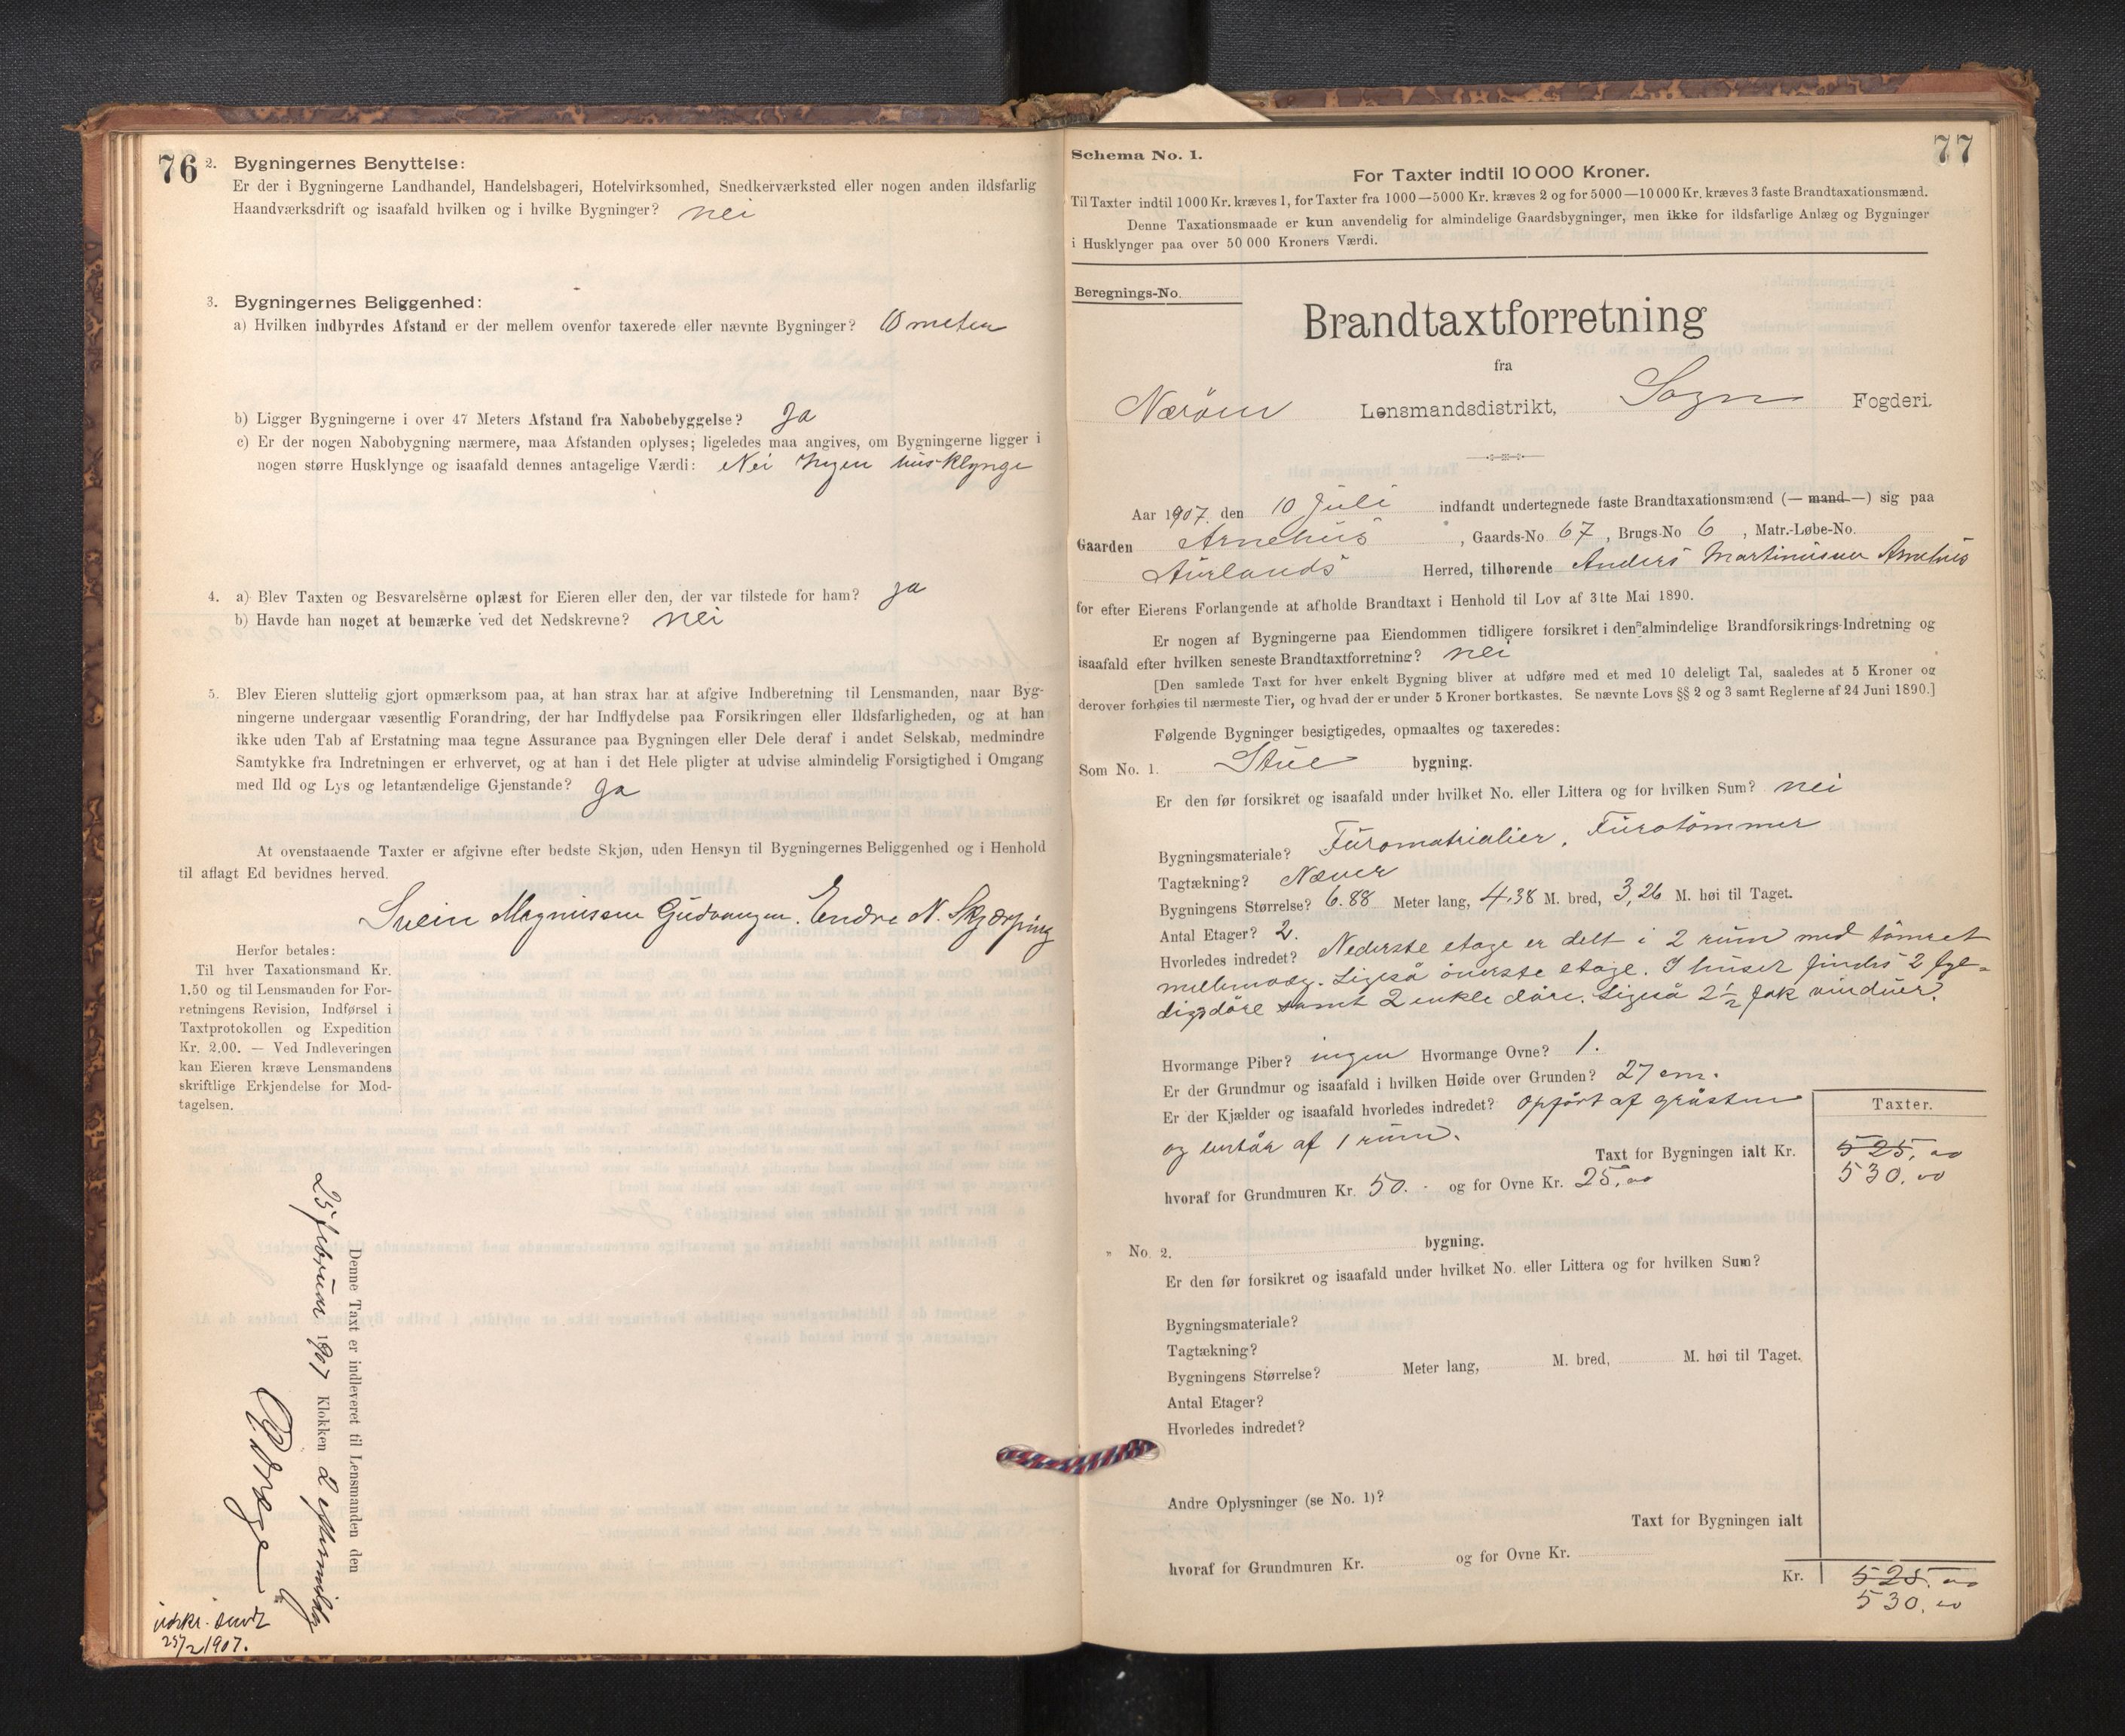 76
2. Bygningernes Benyttelse:
Er der i Bygningerne Landhandel, Handelsbageri, Hotelvirksomhed, Snedkerværksted eller nogen anden ildsfarlig
Haandværksdrift og isaafald hvilken og i hvilke Bygninger? nei
3. Bygningernes Beliggenhed:
a) Hvilken indbyrdes Afstand er der mellem ovenfor taxerede eller nævnte Bygninger? 10 meter
b) Ligger Bygningerne i over 47 Meters Afstand fra Nabobebyggelse? Ja
c) Er der nogen Nabobygning nærmere, maa Afstanden oplyses; ligeledes maa angives, om Bygningerne ligger i
nogen større Husklynge og isaafald dennes antagelige Værdi: Nei Ingen husklynge
4. a) Blev Taxten og Besvarelserne oplæst for Eieren eller den, der var tilstede for ham? Ja
b) Havde han noget at bemærke ved det Nedskrevne? nei
5. Blev Eieren sluttelig gjort opmærksom paa, at han strax har at afgive Indberetning til Lensmanden, naar Byg-
ningerne undergaar væsentlig Forandring, der har Indflydelse paa Forsikringen eller Ildsfarligheden, og at han
ikke uden Tab af Erstatning maa tegne Assurance paa Bygningen eller Dele deraf i andet Selskab, medmindre
Samtykke fra Indretningen er erhvervet, og at han i det Hele pligter at udvise almindelig Forsigtighed i Omgang
med Ild og Lys og letantændelige Gjenstande? Ja
At ovenstaaende Taxter er afgivne efter bedste Skjøn, uden Hensyn til Bygningernes Beliggenhed og i Henhold
til aflagt Ed bevidnes herved.
Svein Magnussen Gudvangen. Endre N. Skjerping
Herfor betales:
Til hver Taxationsmand Kr.
1.50 og til Lensmanden for For-
retningens Revision, Indførsel i
Taxtprotokollen og Expedition
Kr. 2.00. — Ved Indleveringen
kan Eieren kræve Lensmandens
skriftlige Erkjendelse for Mod-
tagelsen.
Denne Taxt er indleveret til Lensmanden den
25 februar 1907 Klokken 2 eftermidag
25/2 1907.
77
Schema No. 1.
For Taxter indtil 10 000 Kroner.
Til Taxter indtil 1000 Kr. kræves 1, for Taxter fra 1000—5000 Kr. kræves 2 og for 5000—10 000 Kr. kræves 3 faste Brandtaxationsmænd.
Denne Taxationsmaade er kun anvendelig for almindelige Gaardsbygninger, men ikke for ildsfarlige Anlæg og Bygninger
i Husklynger paa over 50 000 Kroners Værdi.
Beregnings-No.
Brandtaxtforretning
fra
Nærøen Lensmandsdistrikt, Sogn Fogderi.
Aar 1907. den 10 Juli indfandt undertegnede faste Brandtaxationsmænd (— mand —) sig paa
Gaarden Arnehus, Gaards-No. 67, Brugs-No 6, Matr.-Løbe-No.
Aurlands Herred, tilhørende Anders Martinussen Arnehus
for efter Eierens Forlangende at afholde Brandtaxt i Henhold til Lov af 31te Mai 1890.
Er nogen af Bygningerne paa Eiendommen tidligere forsikret i den almindelige Brandforsikrings-Indretning og
isaafald efter hvilken seneste Brandtaxtforretning? nei
[Den samlede Taxt for hver enkelt Bygning bliver at udføre med et med 10 deleligt Tal, saaledes at 5 Kroner og
derover forhøies til nærmeste Tier, og hvad der er under 5 Kroner bortkastes. Se nævnte Lovs §§ 2 og 3 samt Reglerne af 24 Juni 1890.]
Følgende Bygninger besigtigedes, opmaaltes og taxeredes:
Som No. 1. Stue bygning.
Er den før forsikret og isaafald under hvilket No. eller Littera og for hvilken Sum? nei
Bygningsmateriale? Furomatrialier, Furotømmer
Tagtækning? Næver
Bygningens Størrelse? 6.88 Meter lang, 4,38 M. bred, 3,26 M. høi til Taget.
Antal Etager? 2.
Hvorledes indredet? Nederste etage er delt i 2 rum med tømret
mellemvæg. Ligeså øverste etage. I huset findes 2 fyl-
digsdøre samt 2 enkle døre. Ligeså 2½ fak vinduer.
Hvormange Piber? ingen Hvormange Ovne? 1.
Er der Grundmur og isaafald i hvilken Høide over Grunden? 27 cm.
Er der Kjælder og isaafald hvorledes indredet? Opført af gråsten
og består af 1 rum.
Taxter.
Taxt for Bygningen ialt Kr. 525,00
530,00
hvoraf for Grundmuren Kr. 50.- og for Ovne Kr. 25,00
" No. 2. bygning.
Er den før forsikret og isaafald under hvilket No. eller Littera og for hvilken Sum?
Bygningsmateriale?
Tagtækning?
Bygningens Størrelse? Meter lang, M. bred, M. høi til Taget.
Antal Etager?
Hvorledes indredet?
Andre Oplysninger (se No. 1)?
Taxt for Bygningen ialt
hvoraf for Grundmuren Kr. og for Ovne Kr.
Kr. 525,00
530,00